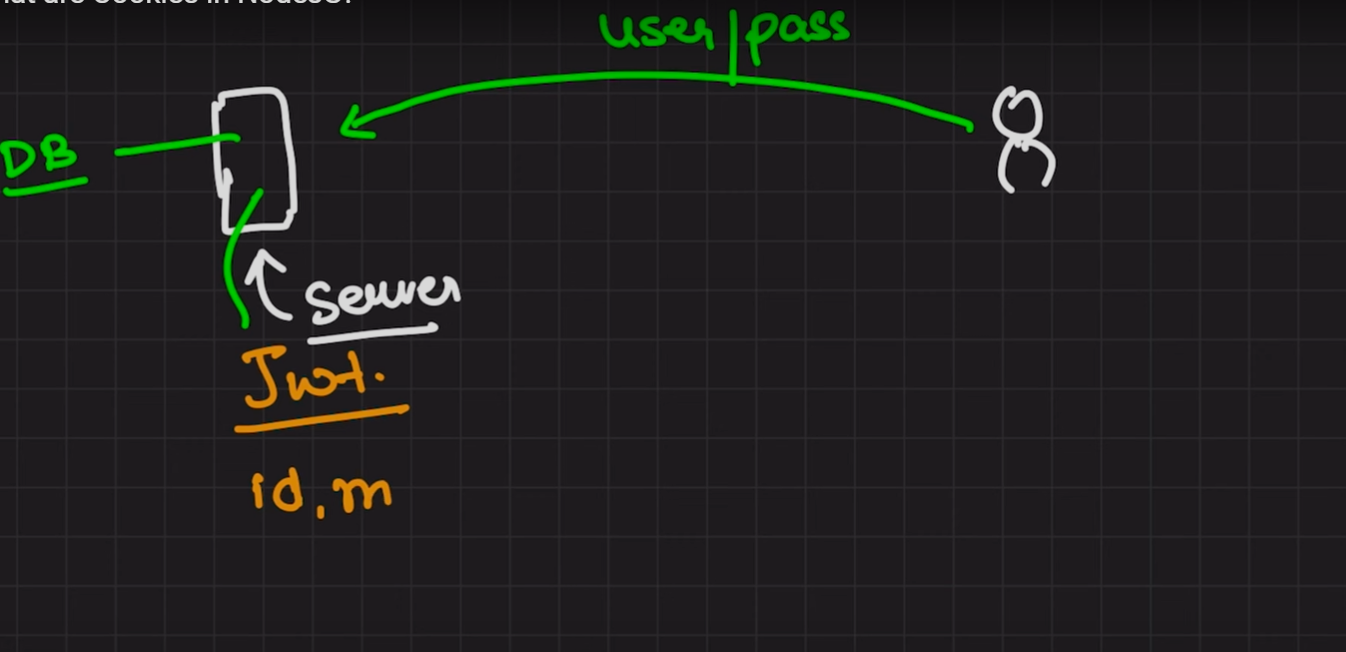 hat are Cookies in NodeJS?
user|pass
DB
Server
Jwt.
id, m